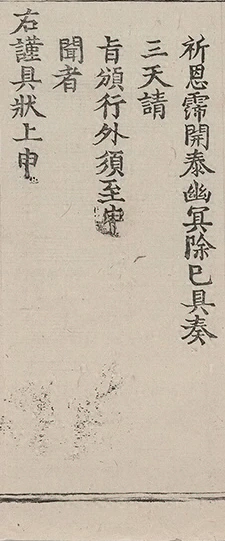 祈恩霈開泰幽冥除已具奏
三天請
旨頒行外須至申
聞者
右謹具狀上申